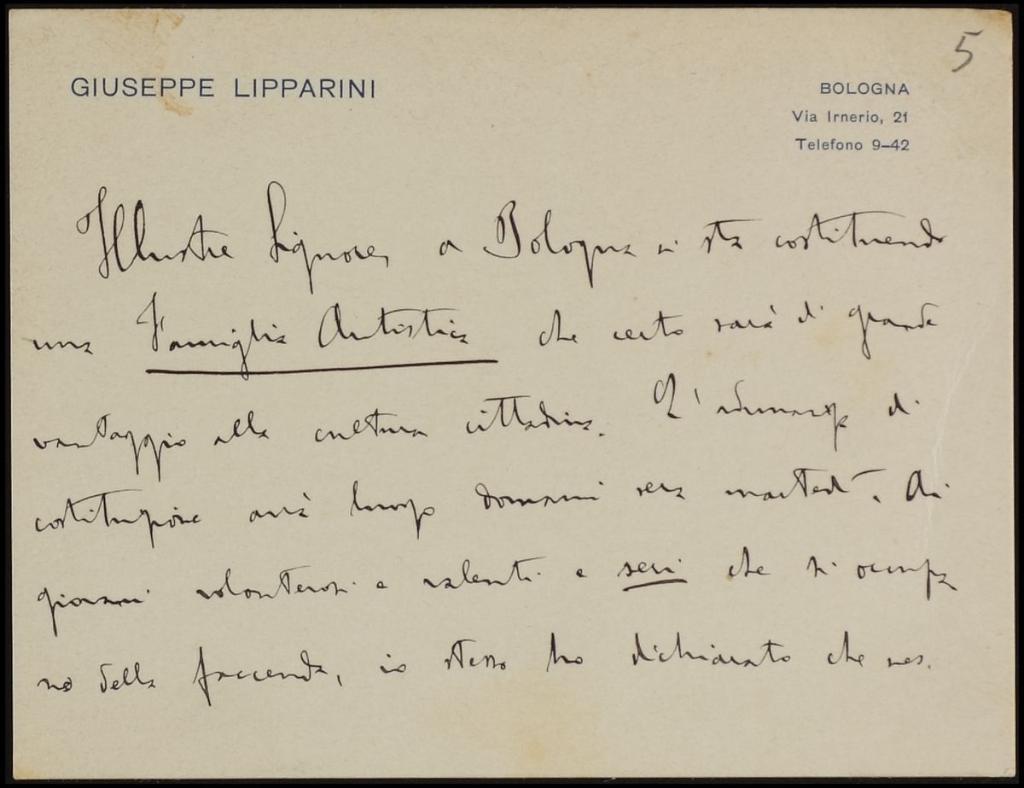 5
GIUSEPPE LIPPARINI
BOLOGNA
Via Irnerio, 21
Telefono 9-42
Illustre Signore, a Bologna si sta costituendo
una Famiglia Artistica che certo sarà di grande
vantaggio alla cultura cittadina. L'adunanza di
costituzione avrà luogo domani sera martedì. Ai
giovani volonterosi e valenti e seri che si occupa
no della faccenda, io stesso ho dichiarato che